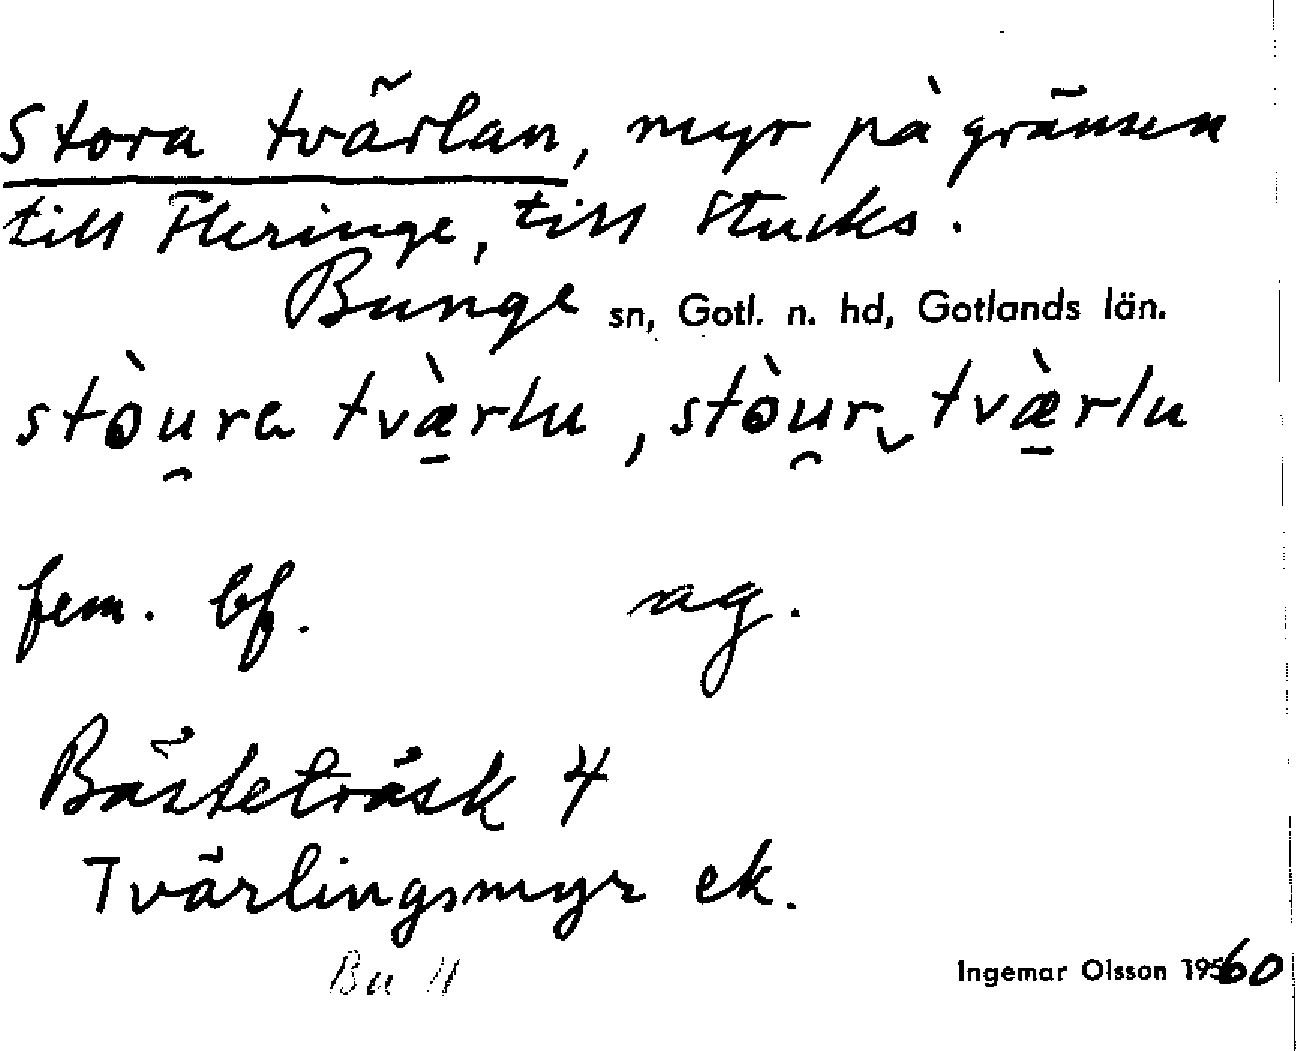 Stora tvärlan, myr på gränsen
till Fleringe, till Stucks.
Bunge sn, Gotl. n. hd, Gotlands län.
stòu̯ra tvæ̠̀rlu, stòu̯r‿tvæ̠̀rlu
fem. bf. ag.
Bästeträsk 4
Tvärlingsmyr ek.
Bu 4
Ingemar Olsson 1960